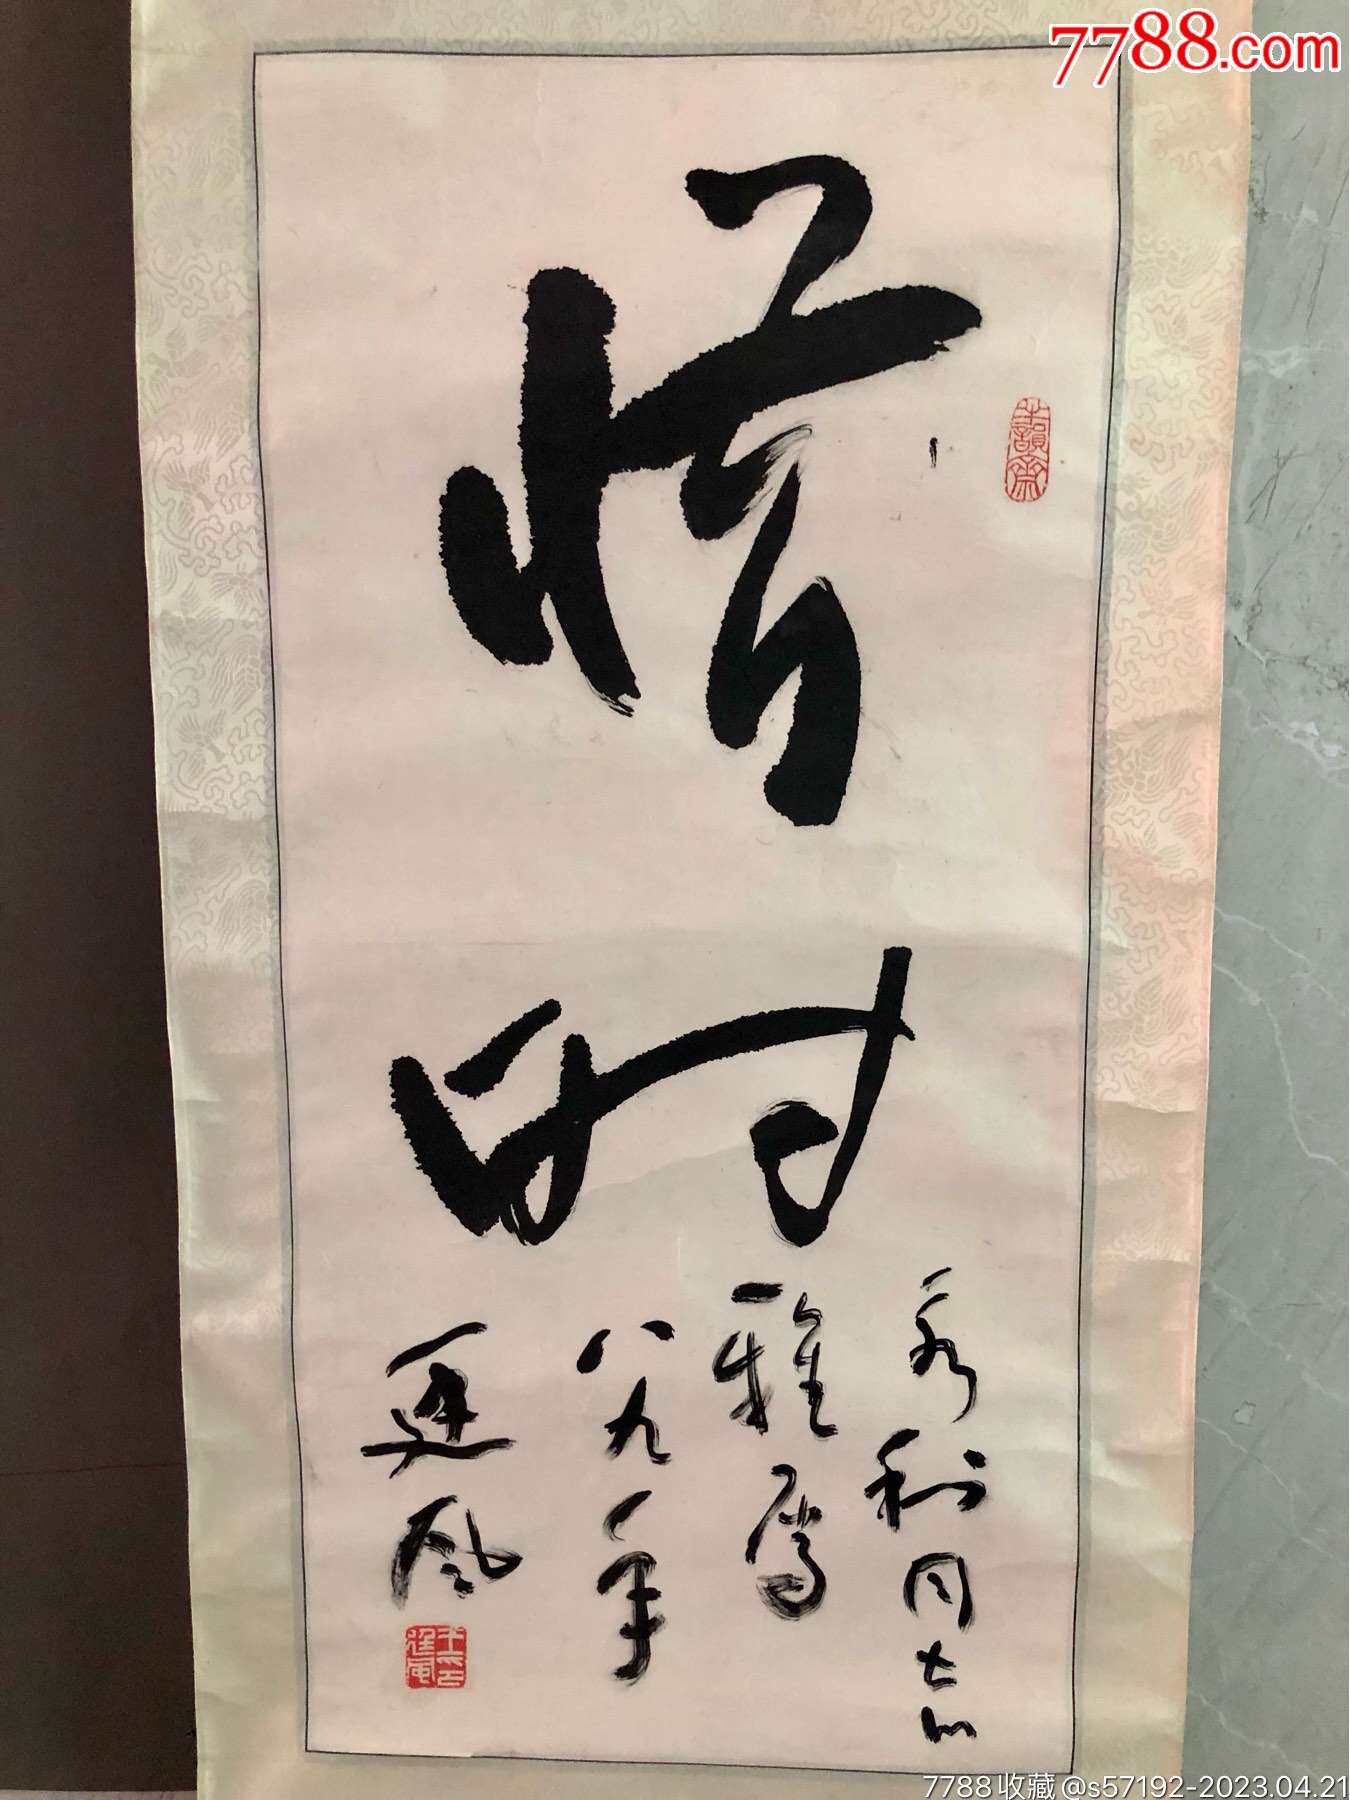 7788.com
惜
时
永利同志
雅属
八九年
廷风
7788收藏@s57192-2023.04.21